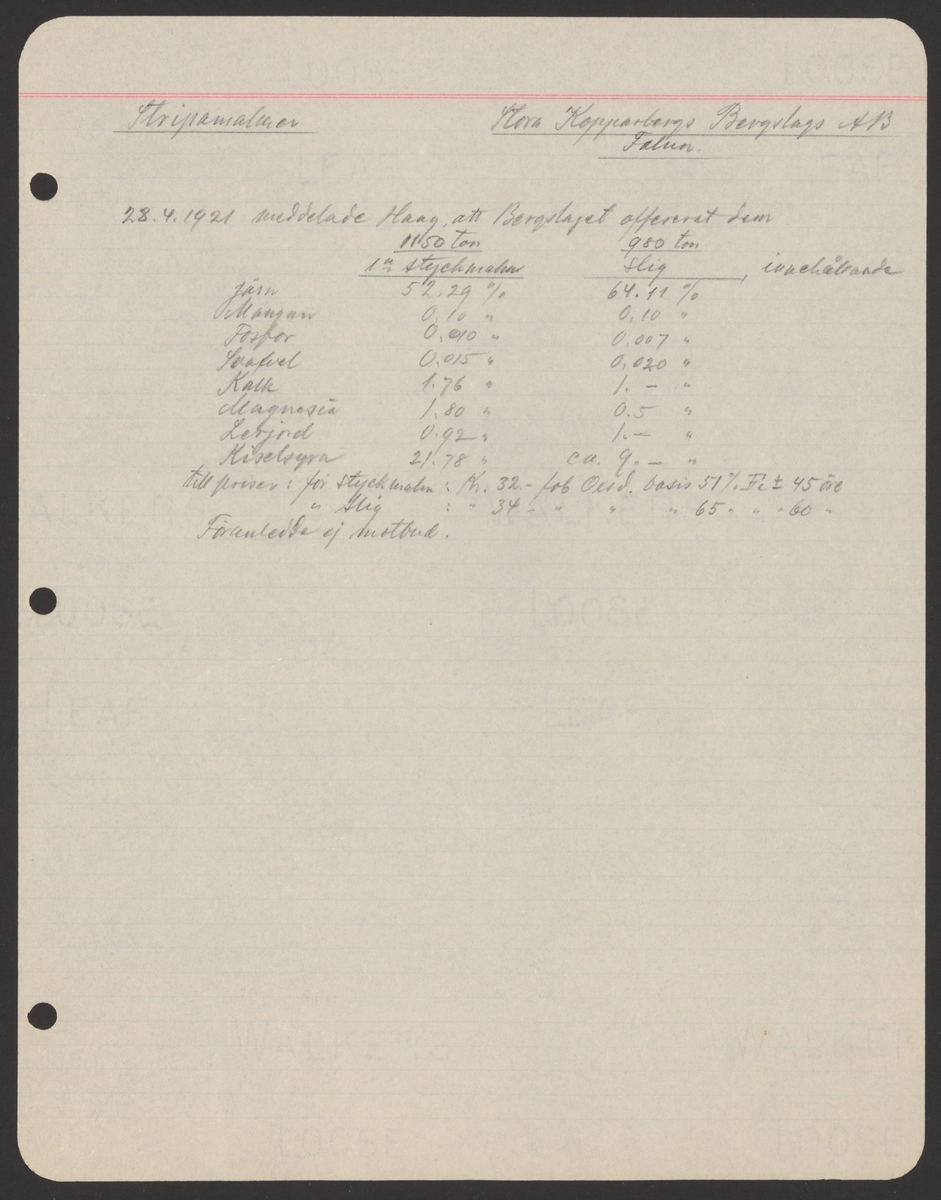 Stripamalmer Stora Kopparbergs Bergslags AB
Falun.
28.4.1921 meddelade Haag, att Bergslaget offererat dem
1150 ton 980 ton
1a styckmalm slig, innehållande
järn 52.29 % 64.11 %
Mangan 0,10 " 0,10 "
Fosfor 0,010 " 0,007 "
Svafvel 0,015 " 0,020 "
Kalk 1.76 " 1.- "
Magnesia 1,80 " 0.5 "
Lerjord 0,92 " 1.- "
Kiselsyra 21.78 " ca. 9.- "
till priser: för styckmalm: Kr. 32.- fob Oxsd. basis 51% Fe ± 45 öre
" slig : " 34.- " " " 65 " " " 60 "
Föranledde ej motbud.